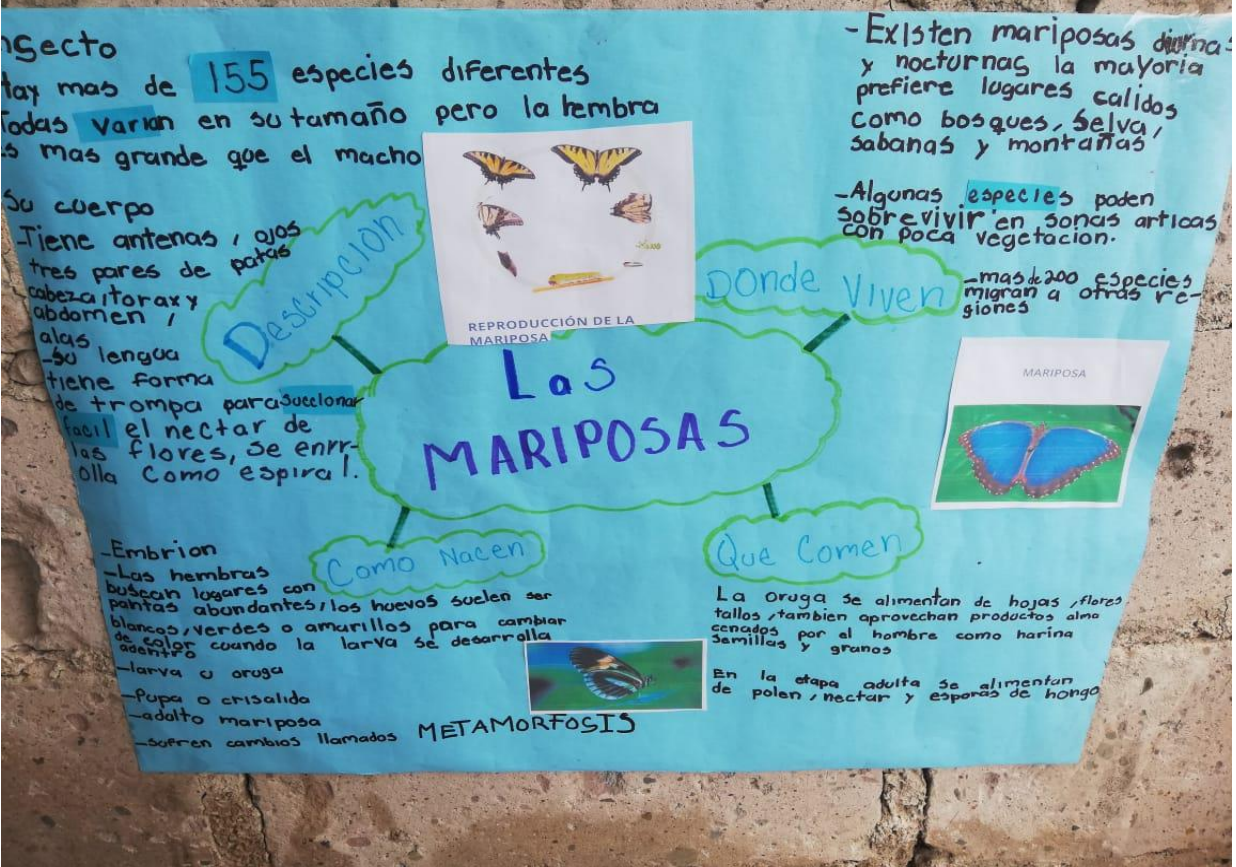 nsecto
Hay mas de 155 especies diferentes
Todas varian en su tamaño pero la hembra
es mas grande que el macho
Su cuerpo
-Tiene antenas, ojos
tres pares de patas
cabeza, torax y
abdomen,
alas
-Su lengua
tiene forma
de trompa para succionar
facil el nectar de
las flores, se enrr-
olla como espiral.
Descripcion
REPRODUCCIÓN DE LA
MARIPOSA
Donde Viven
-Existen mariposas diurnas
y nocturnas la mayoria
prefiere lugares calidos
como bosques, selva,
sabanas y montañas
-Algunas especies poden
sobrevivir en sonas articas
con poca vegetacion.
-mas de 200 especies
migran a otras re-
giones
MARIPOSA
Las
MARIPOSAS
Como Nacen
-Embrion
-Las hembras
buscan lugares con
pantas abundantes, los huevos suelen ser
blancos, verdes o amarillos para cambiar
de color cuando la larva se desarrolla
adentro
-larva u oruga
-Pupa o crisalida
-adulto mariposa
-sufren cambios llamados METAMORFOSIS
Que Comen
La oruga se alimentan de hojas, flores
tallos, tambien aprovechan productos alma
cenados por el hombre como harina
semillas y granos
En la etapa adulta se alimentan
de polen, nectar y esporas de hongo